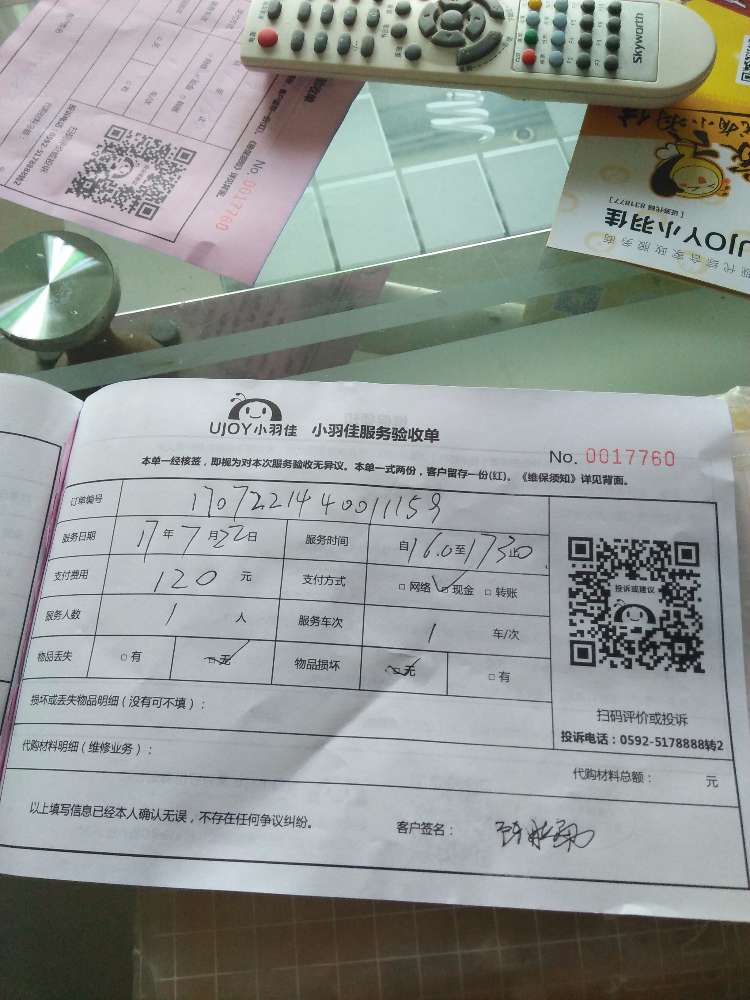 Skyworth
No. 0017760
投诉电话：0592-5178888转2
UJOY小羽佳
[ 证券代码 831877 ]
现代综合家政服务商
UJOY小羽佳 小羽佳服务验收单
No. 0017760
本单一经核签，即视为对本次服务验收无异议。本单一式两份，客户留存一份(红)。《维保须知》详见背面。
订单编号 17072214400111159
服务日期 17年7月22日 服务时间 自16.0至1730止
支付费用 120 元 支付方式 □ 网络 □ 现金 □ 转账
服务人数 1 人 服务车次 1 车/次
物品丢失 □ 有 □ 无 物品损坏 □ 无 □ 有
投诉或建议
扫码评价或投诉
投诉电话：0592-5178888转2
损坏或丢失物品明细（没有可不填）：
代购材料明细（维修业务）：
代购材料总额： 元
以上填写信息已经本人确认无误，不存在任何争议纠纷。
客户签名：